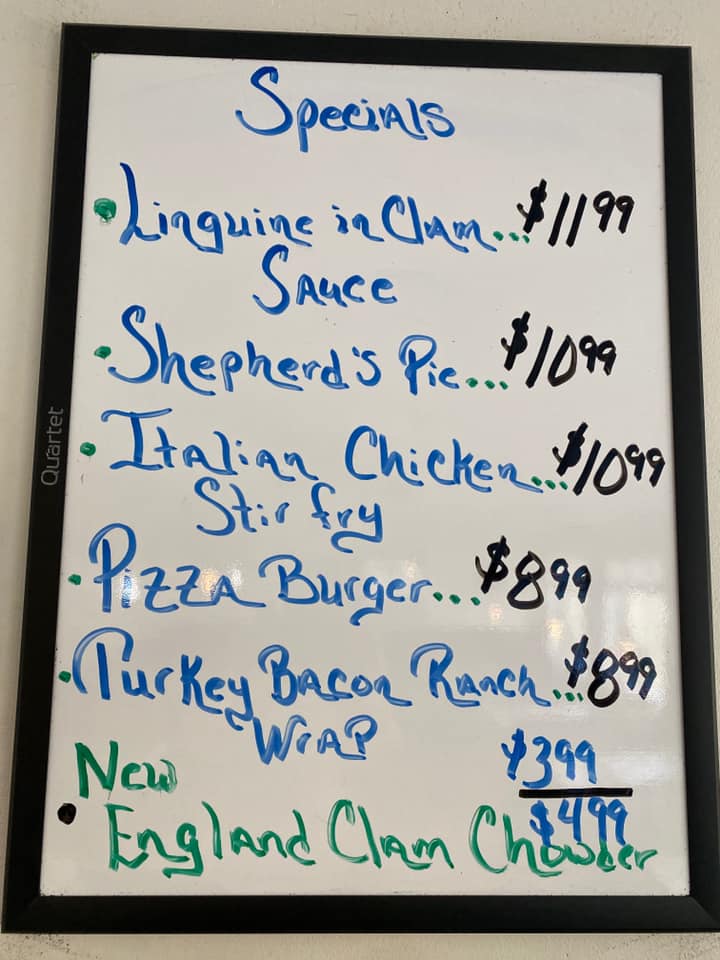 Specials
• Linguine in Clam... $11.99
Sauce
• Shepherd's Pie... $10.99
• Italian Chicken... $10.99
Stir fry
• Pizza Burger... $8.99
• Turkey Bacon Ranch... $8.99
Wrap
New $3.99
$4.99
• England Clam Chowder
Quartet